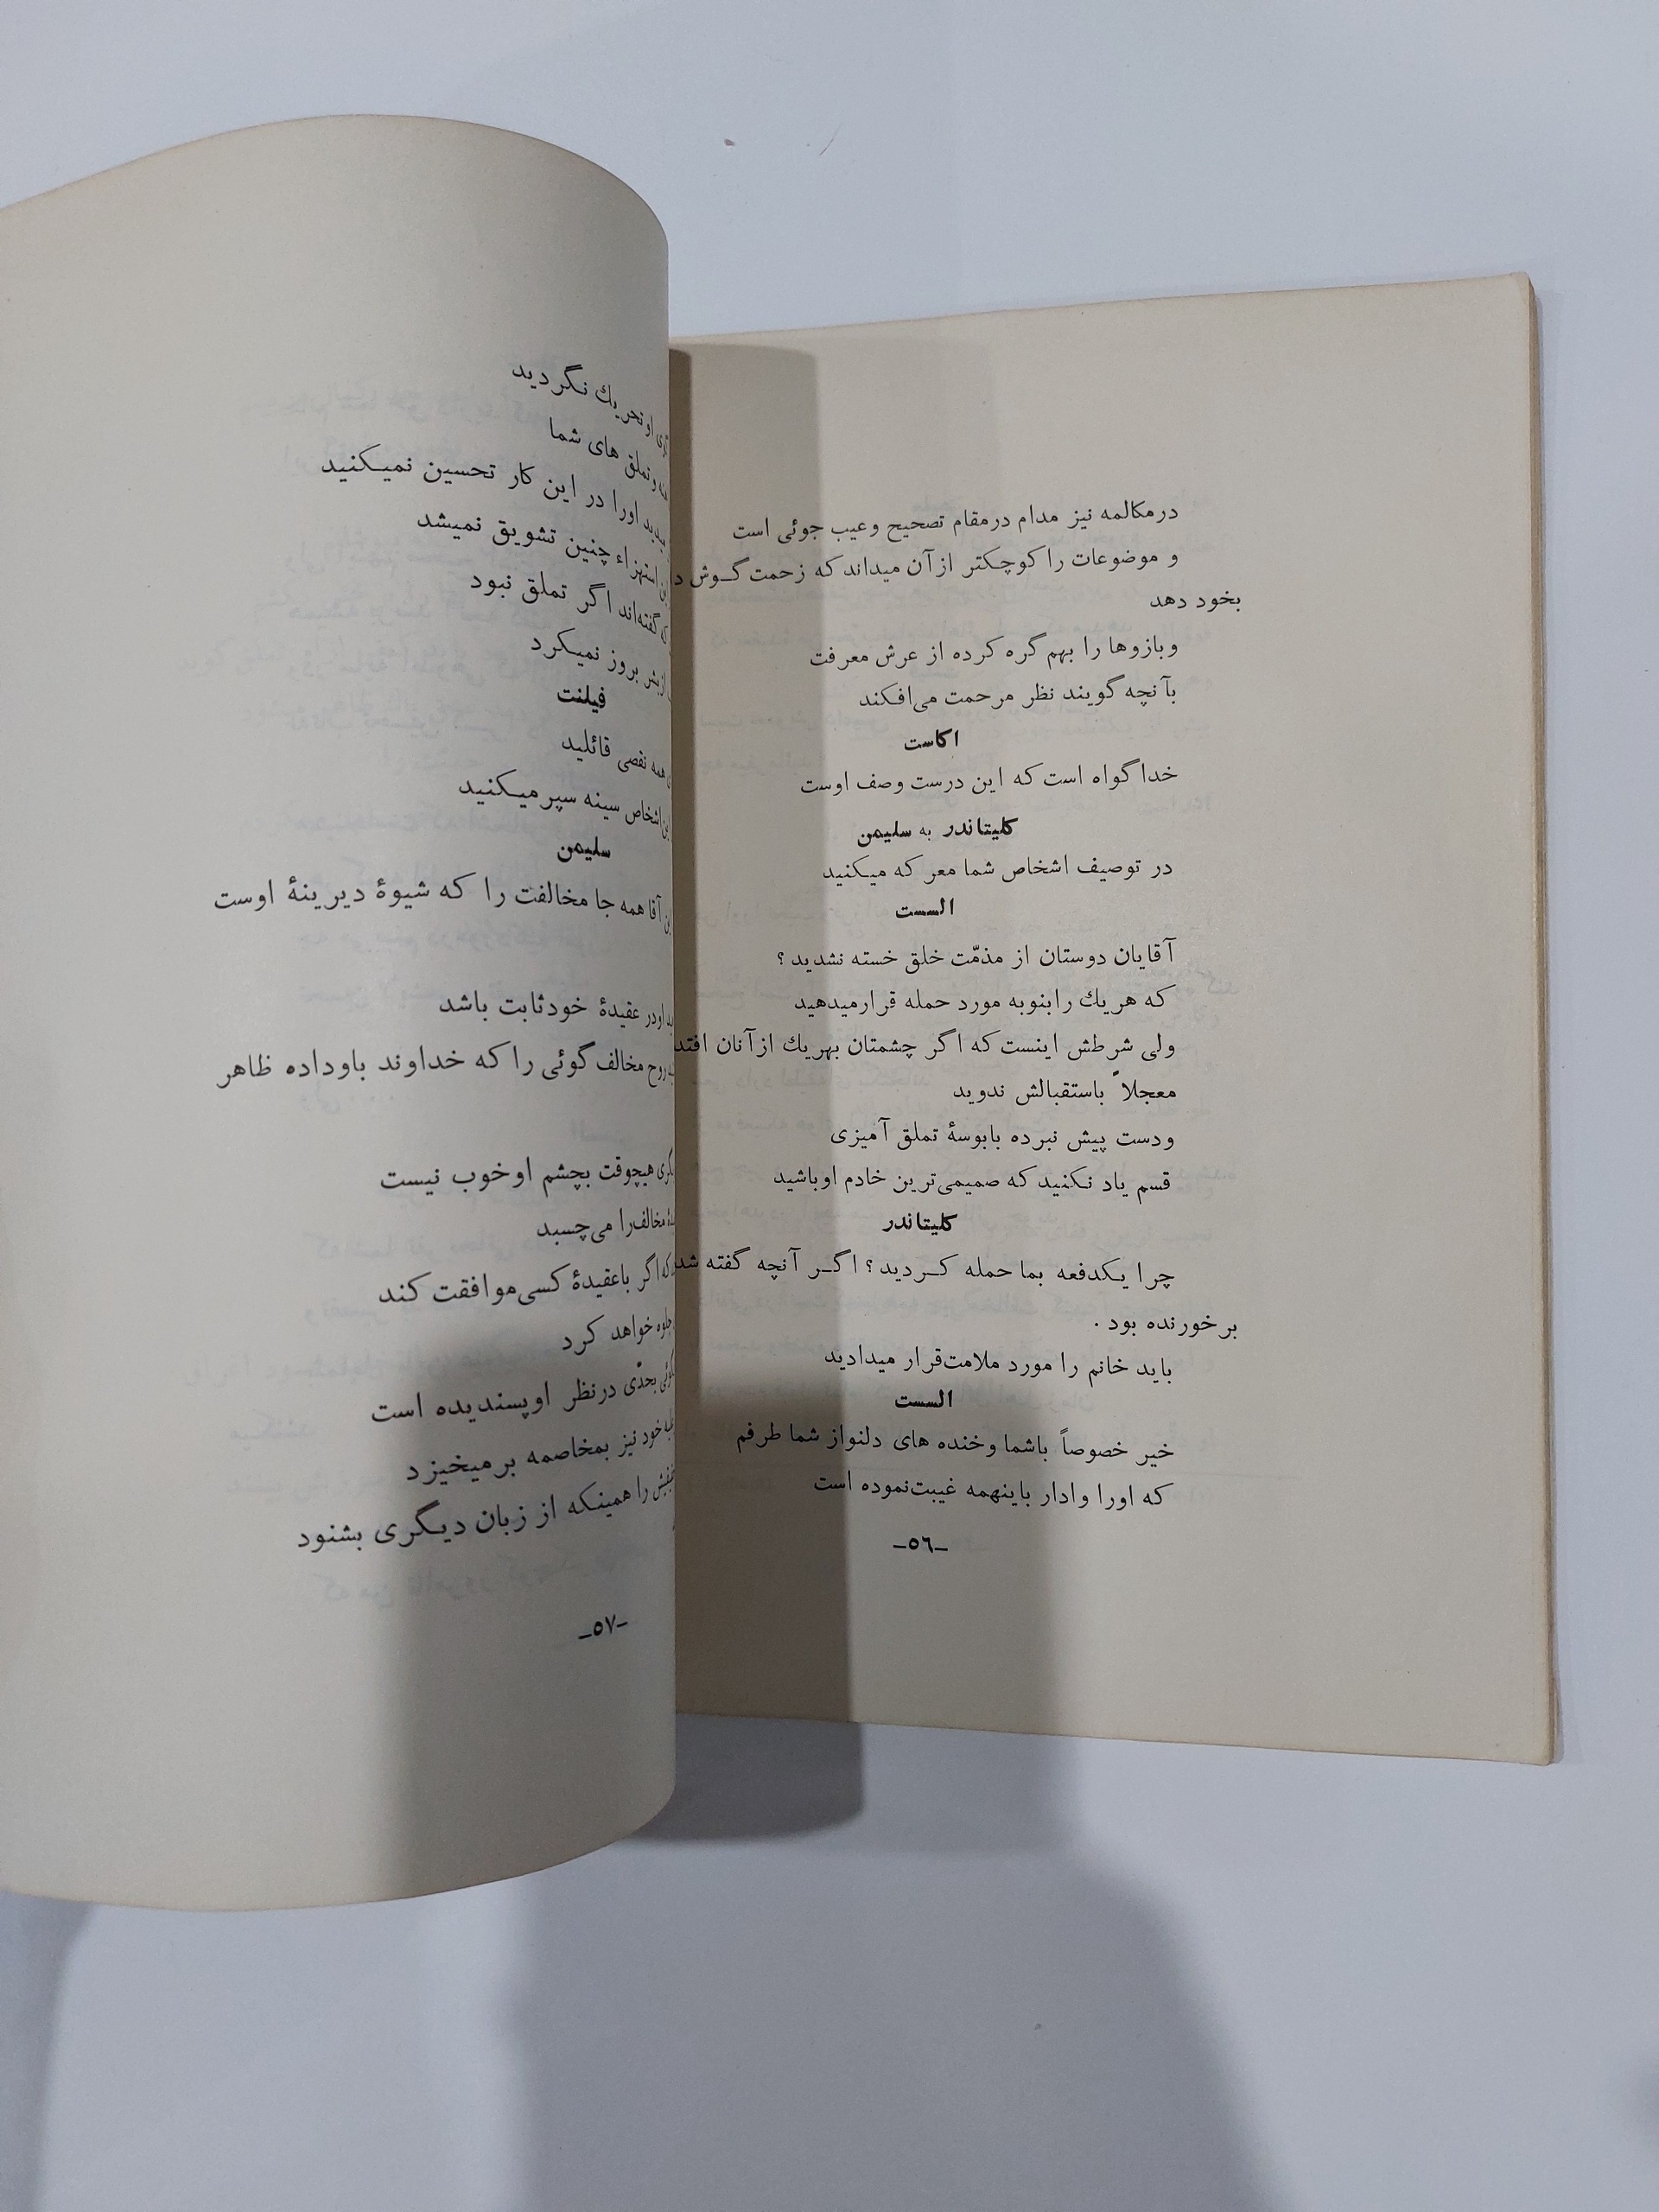 درمکالمه نیز مدام درمقام تصحیح وعیب جوئی است
و موضوعات را کوچکتر ازآن میداند که زحمت گـوش
بخود دهد
وبازوها را بهم گره کرده از عرش معرفت
بآنچه گویند نظر مرحمت می‌افکند
اکاست
خدا گواه است که این درست وصف اوست
کلیتاندر به سلیمن
در توصیف اشخاص شما معرکه میکنید
السست
آقایان دوستان از مذمّت خلق خسته نشدید ؟
که هریك رابنوبه مورد حمله قرارمیدهید
ولی شرطش اینست که اگر چشمتان بهریك ازآنان افتد
معجلاً باستقبالش ندوید
ودست پیش نبرده بابوسهٔ تملق آمیزی
قسم یاد نکنید که صمیمی‌ترین خادم اوباشید
کلیتاندر
چرا یکدفعه بما حمله کـردید ؟ اگـر آنچه گفته شد
برخورنده بود .
باید خانم را مورد ملامت‌قرار میدادید
السست
خیر خصوصاً باشما وخنده های دلنواز شما طرفم
که اورا وادار باینهمه غیبت‌نموده است
-٥٦-
او تحریك نگردید
وتملق های شما
اورا در این کار تحسین نمیـکنید
استهزاء چنین تشویق نمیشد
گفته‌اند اگر تملق نبود
ازبشر بروز نمیکرد
فیلنت
همه نقصی قائلید
اشخاص سینه سپرمیـکنید
سلیمن
آقا همه جا مخالفت را که شیوهٔ دیرینهٔ اوست
اودر عقیدهٔ خودثابت باشد
روح مخالف گوئی را که خداوند باوداده ظاهر
هیچوقت بچشم اوخوب نیست
مخالف‌را می‌چسبد
که اگر باعقیدهٔ کسی‌موافقت کند
جلوه خواهد کرد
بحدّی درنظر اوپسندیده است
خود نیز بمخاصمه برمیخیزد
را همینکه از زبان دیـگری بشنود
-٥٧-